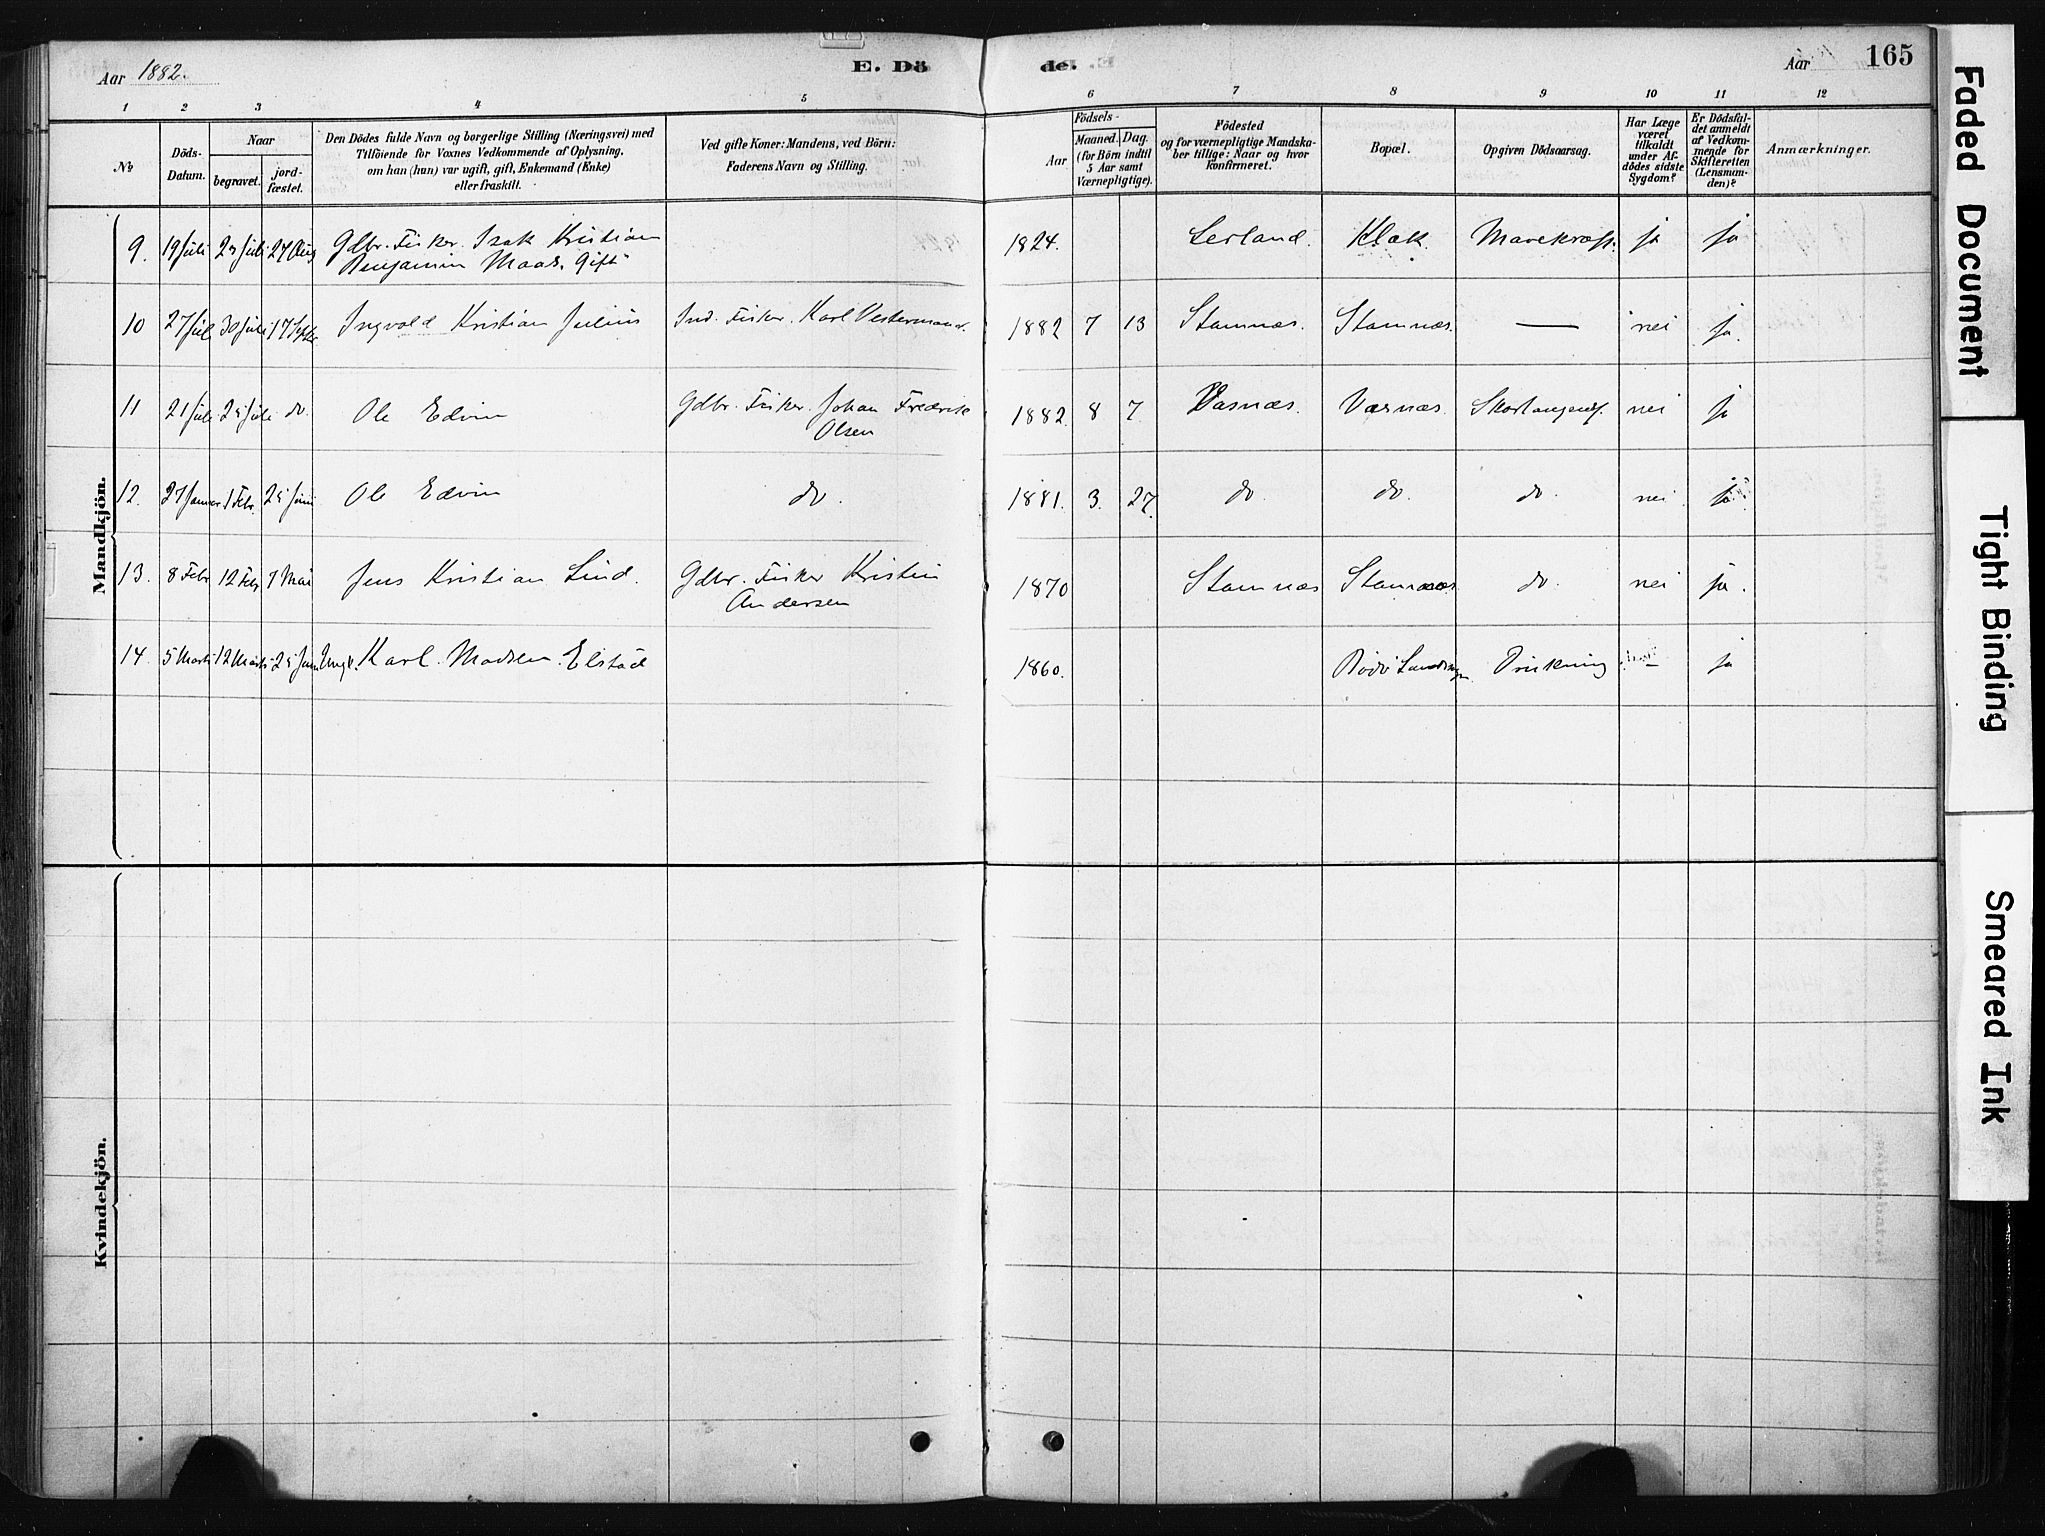 Aar 1882. E. Dö de. Aar 165
1 2 3 4 5 6 7 8 9 10 11 12
No
Döds-Datum.
Naar
begravet.
jord-fæstet.
Den Dödes fulde Navn og borgerlige Stilling (Næringsvei) med
Tilföiende for Voxnes Vedkommende af Oplysning,
om han (hun) var ugift, gift, Enkemand (Enke)
eller fraskilt.
Ved gifte Koner: Mandens, ved Börn:
Faderens Navn og Stilling.
Födsels-
Aar
Maaned. Dag.
(for Börn indtil
5 Aar samt
Værnepligtige).
Födested
og for værnepligtige Mandska-
ber tillige: Naar og hvor
konfirmeret.
Bopæl.
Opgiven Dödsaarsag.
Har Læge
været
tilkaldt
under Af-
dödes sidste
Sygdom?
Er Dödsfal-
det anmeldt
af Vedkom-
mende for
Skifteretten
(Lensman-
den)?
Anmærkninger.
Mandkjön.
9. 19 Juli 23 Juli 27 Aug Gdbr. Fisker. Izak Kristian 1824. Lerland. Klæk. ja ja
Benjamin Gift
10 27 Juli 30 Juli 17 Septbr Ingvald Kristian Julius Ind. Fisker. Karl 1882 7 13 Stamnæs. Stamnæs. — nei ja.
11 21 Juli 25 Juli do. Ole Edvin Gdbr. Fisker. Johan Fredrik 1882. 8 7 Væsnæs. nei ja
Olsen
12. 27 Januar 1 Febr. 25 Juni Ole Edvin do. 1881. 3. 27. do. do. do. nei ja.
13. 8 Febr 12 Febr 7 Mai Jens Kristian Lind. Gdbr. Fisker Kristen 1870 Stamnæs Stamnæs do. nei ja.
Andersen
14. 5 Marts 12 Marts 25 Juni Ungk. Karl Madsen Elstad 1860. Bodö Landsogn Drukning — ja
Kvindekjön.
Faded Document
Tight Binding
Smeared Ink